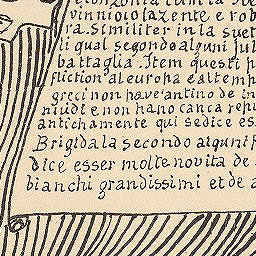 vinniolo lazente e rob
ra. Similiter in la suet
li qual segondo alguni Jul
battaglia. Item questi p
fliction al europa e altemp
greci non have antino de in
niudi e non hano canca repu
antichamente qui se dice es
Brigida la secondo alguni f
dice esser molte novita de
bianchi grandissimi et de a